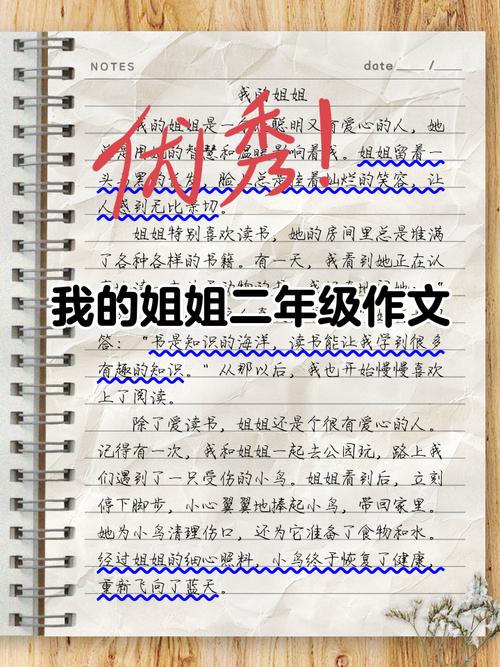 NOTES
date ___ /___
我的姐姐
优秀!
我的姐姐是一个聪明又有爱心的人，她
总是用她的智慧和温暖影响着我。姐姐留着一
头黑的长发，脸上总是挂着灿烂的笑容，让
人感到无比亲切。
姐姐特别喜欢读书，她的房间里总是堆满
了各种各样的书籍。有一天，我看到她正在认
我的姐姐二年级作文
答："书是知识的海洋，读书能让我学到很多
有趣的知识。"从那以后，我也开始慢慢喜欢
上了阅读。
除了爱读书，姐姐还是个很有爱心的人。
记得有一次，我和姐姐一起去公园玩，路上我
们遇到了一只受伤的小鸟。姐姐看到后，立刻
停下脚步，小心翼翼地捧起小鸟，带回家里。
她为小鸟清理伤口，还为它准备了食物和水。
经过姐姐的细心照料，小鸟终于恢复了健康，
重新飞向了蓝天。